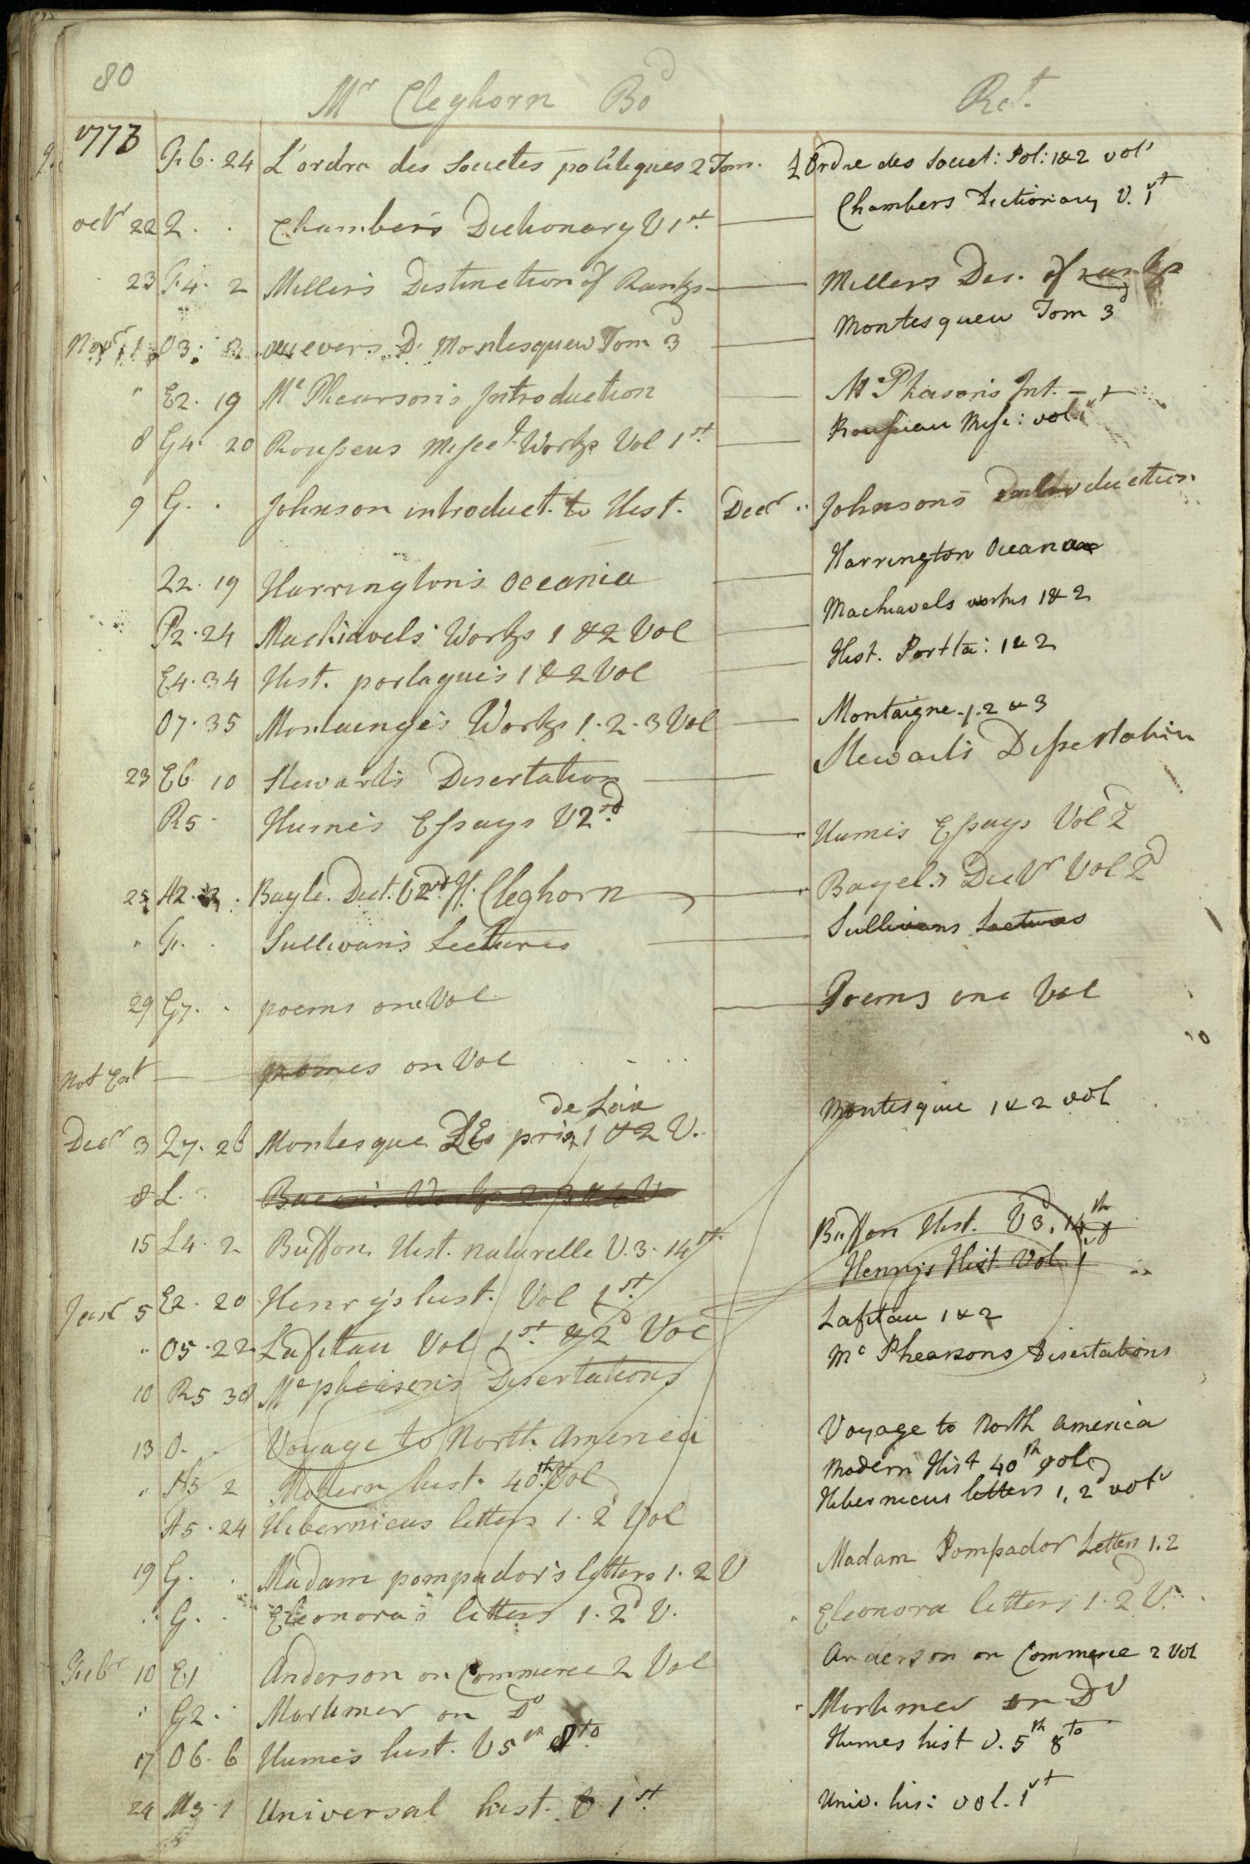 80
Mr Cleghorn Bod Ret.
1773 F6. 24 L'ordre des Societes politiques 2 Tom. L'Ordre des Societ: Pol: 1&2 vols
Octr 22 2. Chambers Dictionary V 1st. Chambers Dictionary V. 1st
23 F4. 2 Millers Distinction of Ranks Millers Dis. of ranks
Novr 1 O3. 3 D. Montesquieu Tom 3d Montesqueu Tom 3d
" E2. 19 Mc Phearson's Introduction Mc Phersons Int.
8 G4. 20 Rouseus Miscel. Works Vol 1st Rouseau Mise: vol 1
9 G. Johnson introduct. to Hist. Decr Johnsons Introduction
Z2. 19 Harrington's Oceania Harrington Oceana
P2. 24 Machiavels Works 1 & 2 Vol Machiavels works 1&2
E4. 34 Hist. portaguis 1 & 2 Vol Hist. Portta: 1&2
O7. 35 Montainge's Works 1. 2. 3 Vol Montaigne. 1. 2 & 3
23 E6 10 Stewarts Disertation Stewarts Dissertation
R5 Humes Essays V 2nd. Humes Essays Vol 2d
25 A2. Bayle. Dict. V 2nd H. Cleghorn Bayel's Dict Vol 2d
" G. Sullivans Lectures Sullivans Lectures
29 G7. poems one Vol Poems one Vol
Not Ent pomes on Vol
de Loix
Decr 3 Z7. 26 Montesque L'Es prix 1 & 2 V. Montesquie 1&2 vol
8 L. Bacon's Works 2. 3 & 4 V
15 L4. 2 Buffon Hist. Naturelle V. 3. 14th Buffon Hist. V 3. 14th
Henrys Hist. Vol 1st
Janr 5 E2. 20 Henrys hist. Vol 1st.
" O5. 22 Lafitau Vol 1st & 2d Vol Lafitau 1&2
10 R5 38 Mcphearson's Disertations Mc Phearsons Disertations
13 O. Voyage to North America Voyage to North America
" A5 2 Modern hist. 40th Vol Modern Hist 40th vol
A5. 24 Hibernicus letters 1. 2 Vol Hibernicus letters 1, 2 vols
19 G. Madam pompador's letters 1. 2 V Madam Pompador Letters 1. 2
" G. Eleonora's letters 1. 2d V. Eleonora letters 1. 2d V.
Febr 10 E1 Anderson on Commerce 2 Vol Anderson on Commerce 2 Vol
" G2. Mortimer on Do Mortimer on Do
17 O6. 6 Humes hist. V 5th 8to. Humes hist V. 5th 8to
24 M3. 1 Universal hist. V. 1st. Univ. his: vol. 1st